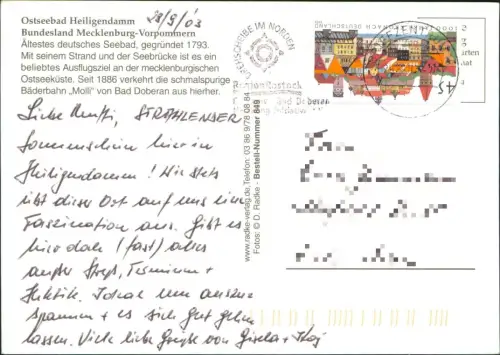 Ostseebad Heiligendamm
Bundesland Mecklenburg-Vorpommern
Ältestes deutsches Seebad, gegründet 1793.
Mit seinem Strand und der Seebrücke ist es ein
beliebtes Ausflugsziel an der mecklenburgischen
Ostseeküste. Seit 1886 verkehrt die schmalspurige
Bäderbahn „Molli" von Bad Doberan aus hierher.
28/9/03
Liebe STRAHLENDER
Sonnenschein hier in
Heiligendamm! Wie stets
übt dieser Ort auf uns eine
Faszination aus. Gibt es
hier doch (fast) alles
außer Streß, Terminen +
Hektik. Ideal um auszu-
spannen + es sich gut gehen
lassen. Viele liebe Grüße von Gisela +
www.radke-verlag.de, Telefon: 03 86 9/78 08 84
Fotos: © D. Radke · Bestell-Nummer 849
IM NORDEN
Rostock
Bad Doberan
DEUTSCHLAND
45